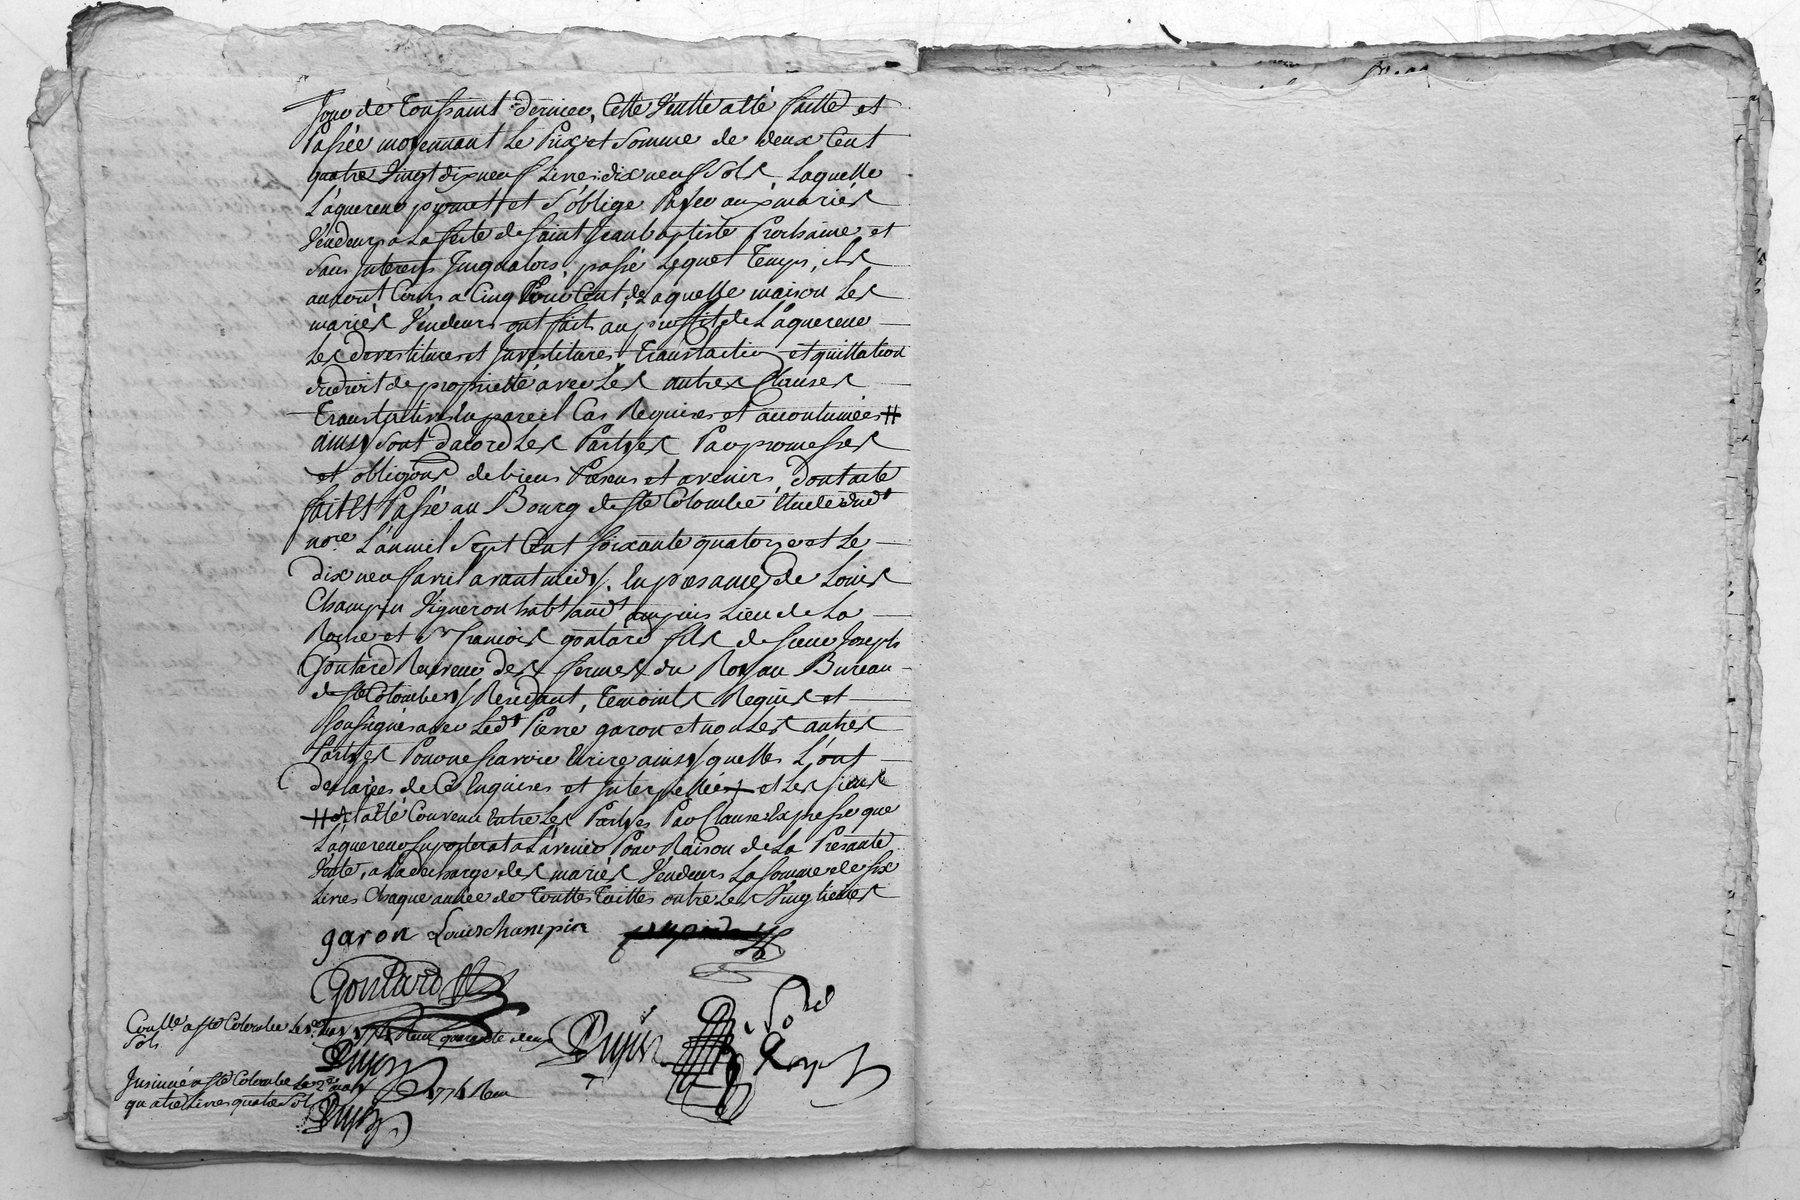 Jour de Toussaint dernier, Cette Vente a été faitte et
Passée moyennant Le Prix et Somme de deux Cent
quatre Vingt dix neuf Livres dix neuf Sols, Laquelle
L'aquereur promet et S'oblige Payer aux mariés
Vendeurs a La feste de Saint Jean baptiste Prochaine, et
Sans Interets Jusqualors, passé Lequel Temps, ils
auront Cours a Cinq Pour Cent, de Laquelle maison Les
mariés Vendeurs ont fait au proffit de L'aquereur
Les devestitures et Investitures, Translation et quittation
du droit de proprietté avec Les autres Clauses
Translatives En pareil Cas Requises et accoutumées #
ainsy Sont dacord Les Partyes Par promesses
et obligaõns de biens Presens et avenirs, dont acte
fait Et Passé au Bourg de Ste Colombe Etude dudt
nore. L'an mil Sept Cent Soixante quatorze et Le
dix neuf avril avant midy. En presance de Louis
Champin Vigneron habt audt Lieu de La
Roche et Sr francois goutard fils de Sieur Joseph
Goutard Receveur des fermes du Roy au Bureau
de Ste Colombe y Residant, Temoints Requis et
Soussignés avec Ledt Pierre garon et non Les autres
Partyes Pour ne Scavoir Ecrire ainsy quelles L'ont
declarées de Ce Enquises et Interpellées et Les Sieurs
# et a été Convenu Entre Les Partyes Par Clause Expresse que
L'aquereur Suportera a L'avenir Pour Raison de La Presente
Vente, a La decharge des mariés Vendeurs La Somme de Six
Livres Chaque année de Touttes Tailles outre Les Vingtiemes
garon Louis champin
Goutard
Conllé a Ste Colombe Le 2e may 1774 Recu quarante deux
Sols
Dujon
Dujon
Insinué a Ste Colombe Le 2e may 1774 Recu
quatre Livres quatre Sols
Dujon